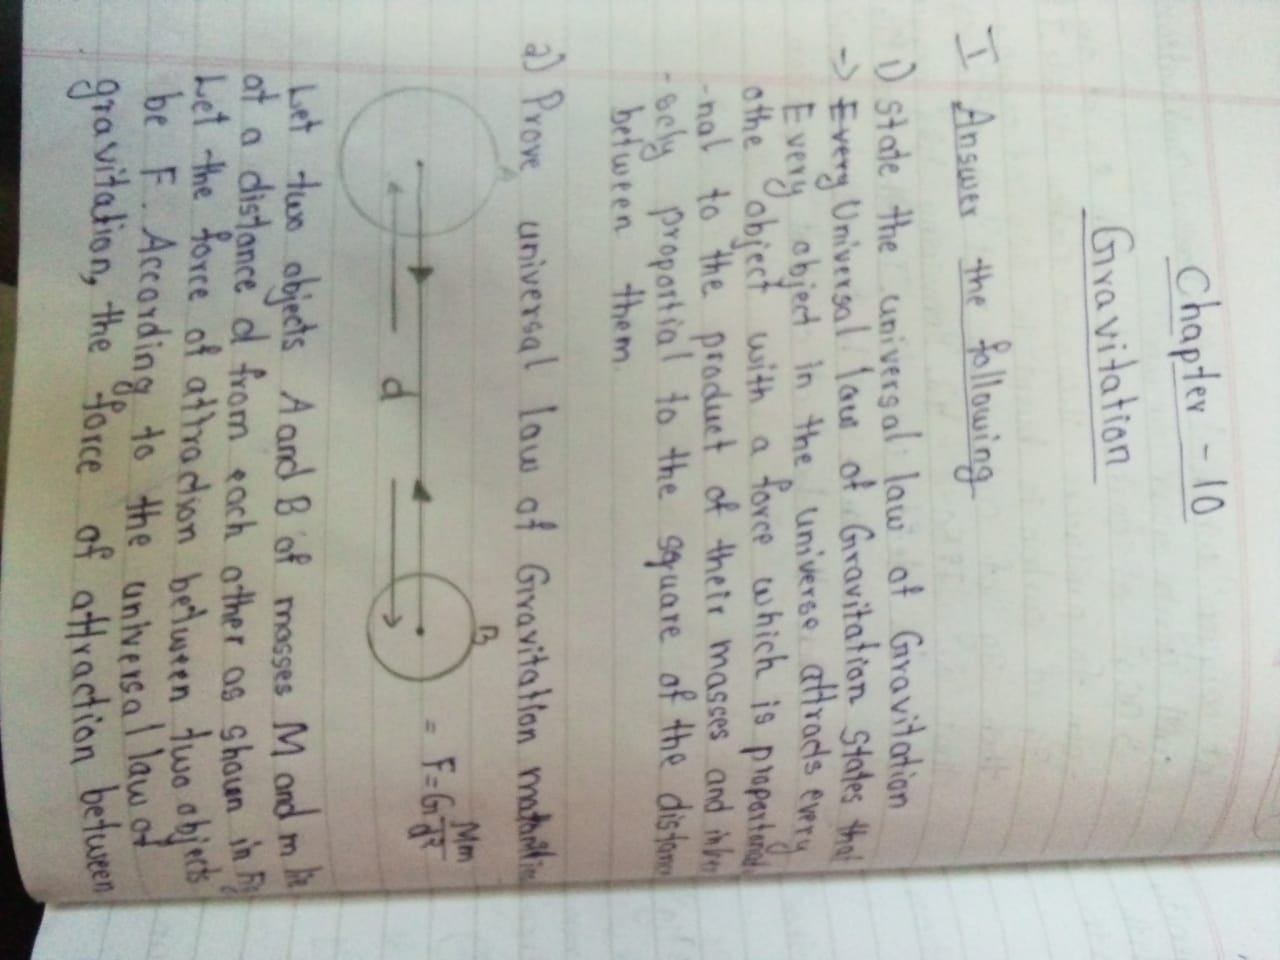 Chapter - 10
Gravitation
I Answer the following
1) state the universal law of Gravitation
-> Every Universal law of Gravitation States that
Every object in the universe attracts every
othe object with a force which is
-nal to the product of their masses and
-sely proportial to the square of the distance
between them.
2) Prove universal law of Gravitation
A
B
= F=G Mm/d²
d
Let two objects A and B of masses M and m lie
at a distance d from each other as shown in Fig
Let the force of attraction between two objects
be F. According to the universal law of
gravitation, the force of attraction between